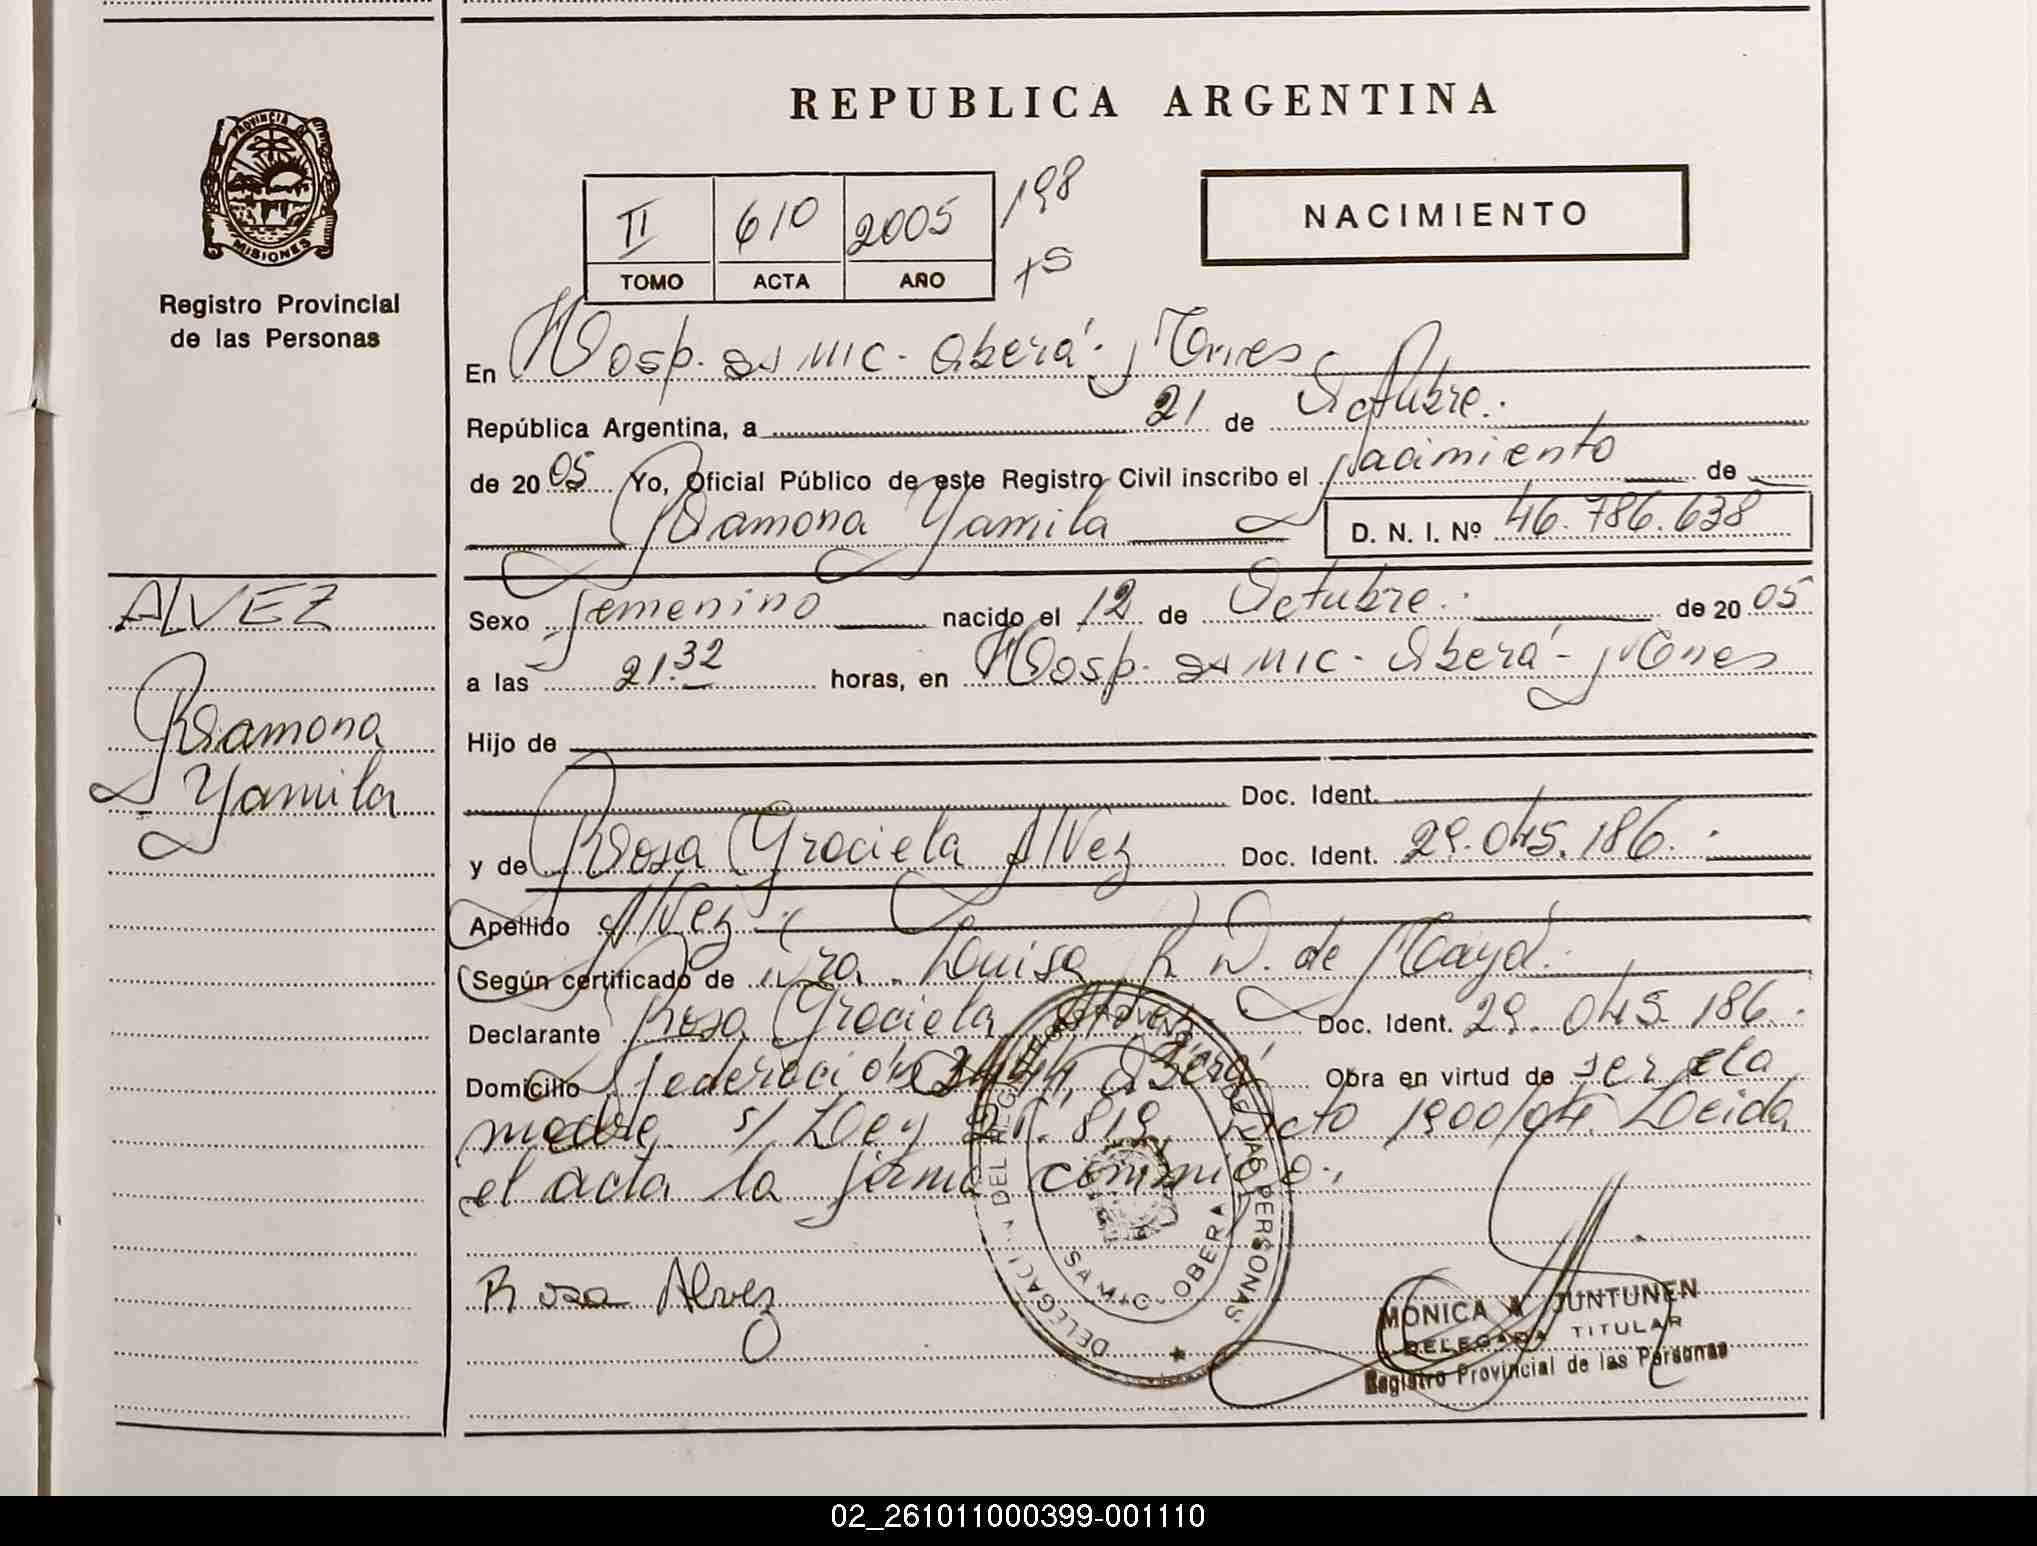 REPUBLICA ARGENTINA
PROVINCIA D
MISIONES
Registro Provincial
de las Personas
II 610 2005 198
TOMO ACTA AÑO
NACIMIENTO
En Hosp. SAMIC - Oberá - Mnes
República Argentina, a 21 de Octubre.
de 2005 Yo, Oficial Público de este Registro Civil inscribo el Nacimiento de
Ramona Yamila D. N. I. Nº 46.786.638
ALVEZ
Ramona
Yamila
Sexo femenino nacido el 12 de Octubre. de 2005
a las 21.32 horas, en Hosp. SAMIC - Oberá - Mnes
Hijo de
Doc. Ident.
y de Rosa Graciela Alvez Doc. Ident. 29.045.186.
Apellido Alvez
Según certificado de Dra. Luisa R D. de Mayd.
Declarante Rosa Graciela Alvez Doc. Ident. 29.045.186.
Domicilio Federación 344, Oberá Obra en virtud de ser ela
madre s/ Ley Nº. 819 Dcto 1900/04. Leida
el acta la firma conmigo.
Rosa Alvez
DELEGACION DEL REGISTRO PROVINCIAL DE LAS PERSONAS
SAMIC - OBERA
MONICA A JUNTUNEN
DELEGADA TITULAR
Registro Provincial de las Personas
02_261011000399-001110